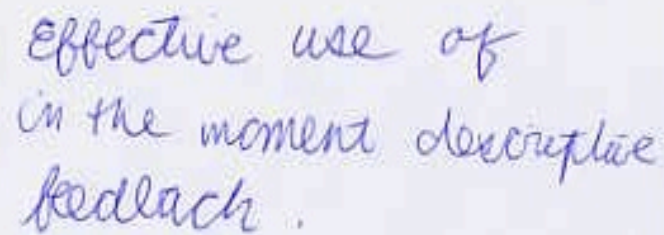 Effective use of
in the moment descriptive
feedback.